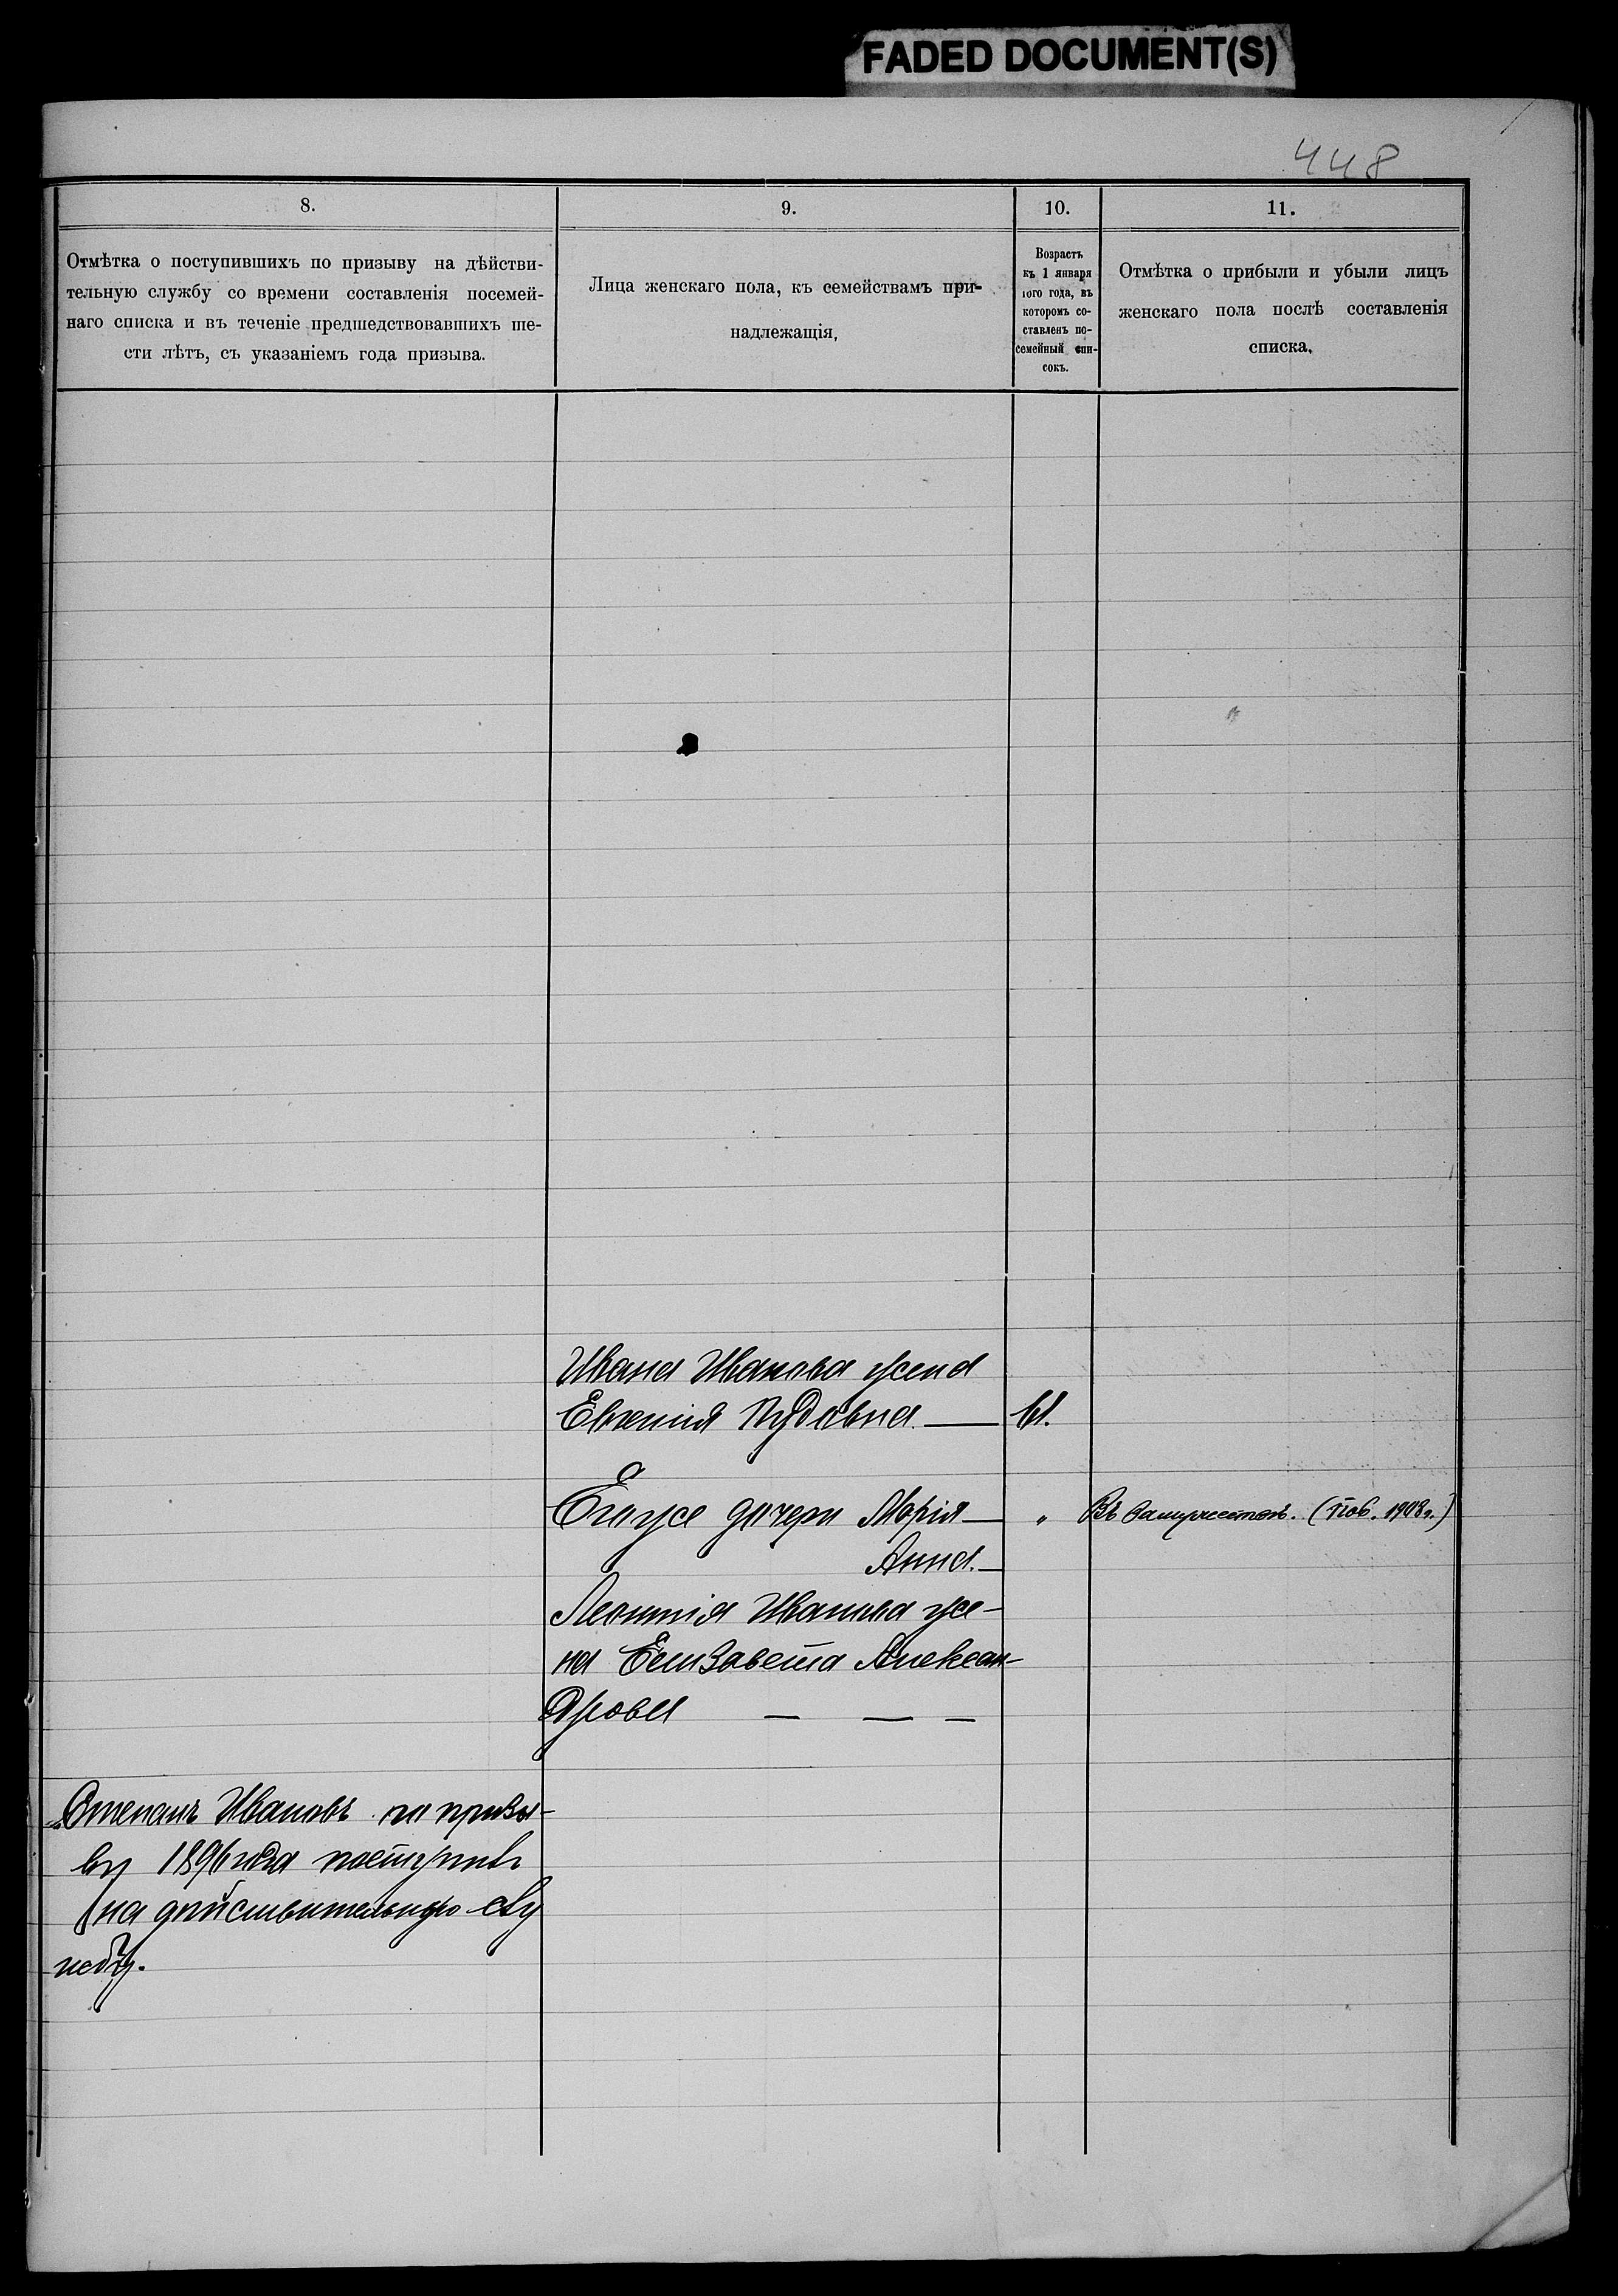 FADED DOCUMENT(S)
448
8.
Отмѣтка о поступившихъ по призыву на дѣйстви-
тельную службу со времени составленія посемей-
наго списка и въ теченіе предшедствовавшихъ ше-
сти лѣтъ, съ указаніемъ года призыва.
9.
Лица женскаго пола, къ семействамъ при-
надлежащія,
10.
Возрастъ
къ 1 января
того года, въ
которомъ со-
ставленъ по-
семейный спи-
сокъ.
11.
Отмѣтка о прибыли и убыли лицъ
женскаго пола послѣ составленія
списка.
Ивана Иванова жена
Евгенія Пудовна —
Его же дочери Марія — „ Въ замужествѣ. (Пов. 1908 г.)
Анна. —
Леонтія Иванова же-
на Елизавета Алексан-
дрова — — —
Степанъ Ивановъ по призы-
ву 1896 года поступилъ
на дѣйствительную слу
жбу.